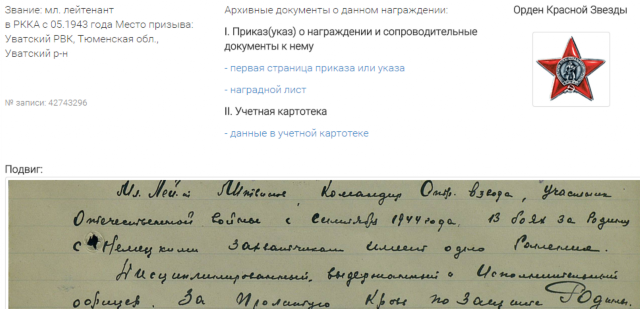 Звание: мл. лейтенант
в РККА с 05.1943 года Место призыва:
Уватский РВК, Тюменская обл.,
Уватский р-н
№ записи: 42743296
Архивные документы о данном награждении:
I. Приказ(указ) о награждении и сопроводительные
документы к нему
- первая страница приказа или указа
- наградной лист
II. Учетная картотека
- данные в учетной картотеке
Орден Красной Звезды
Подвиг:
Мл. Лей-т Командир взвода, участник
Отечественной войны с сентября 1944 года. В боях за Родину
с Немецкими захватчиками имеет одно Ранение.
Дисциплинированный, выдержанный и Исполнительный
офицер. За Пролитую Кровь по Защите Родины.